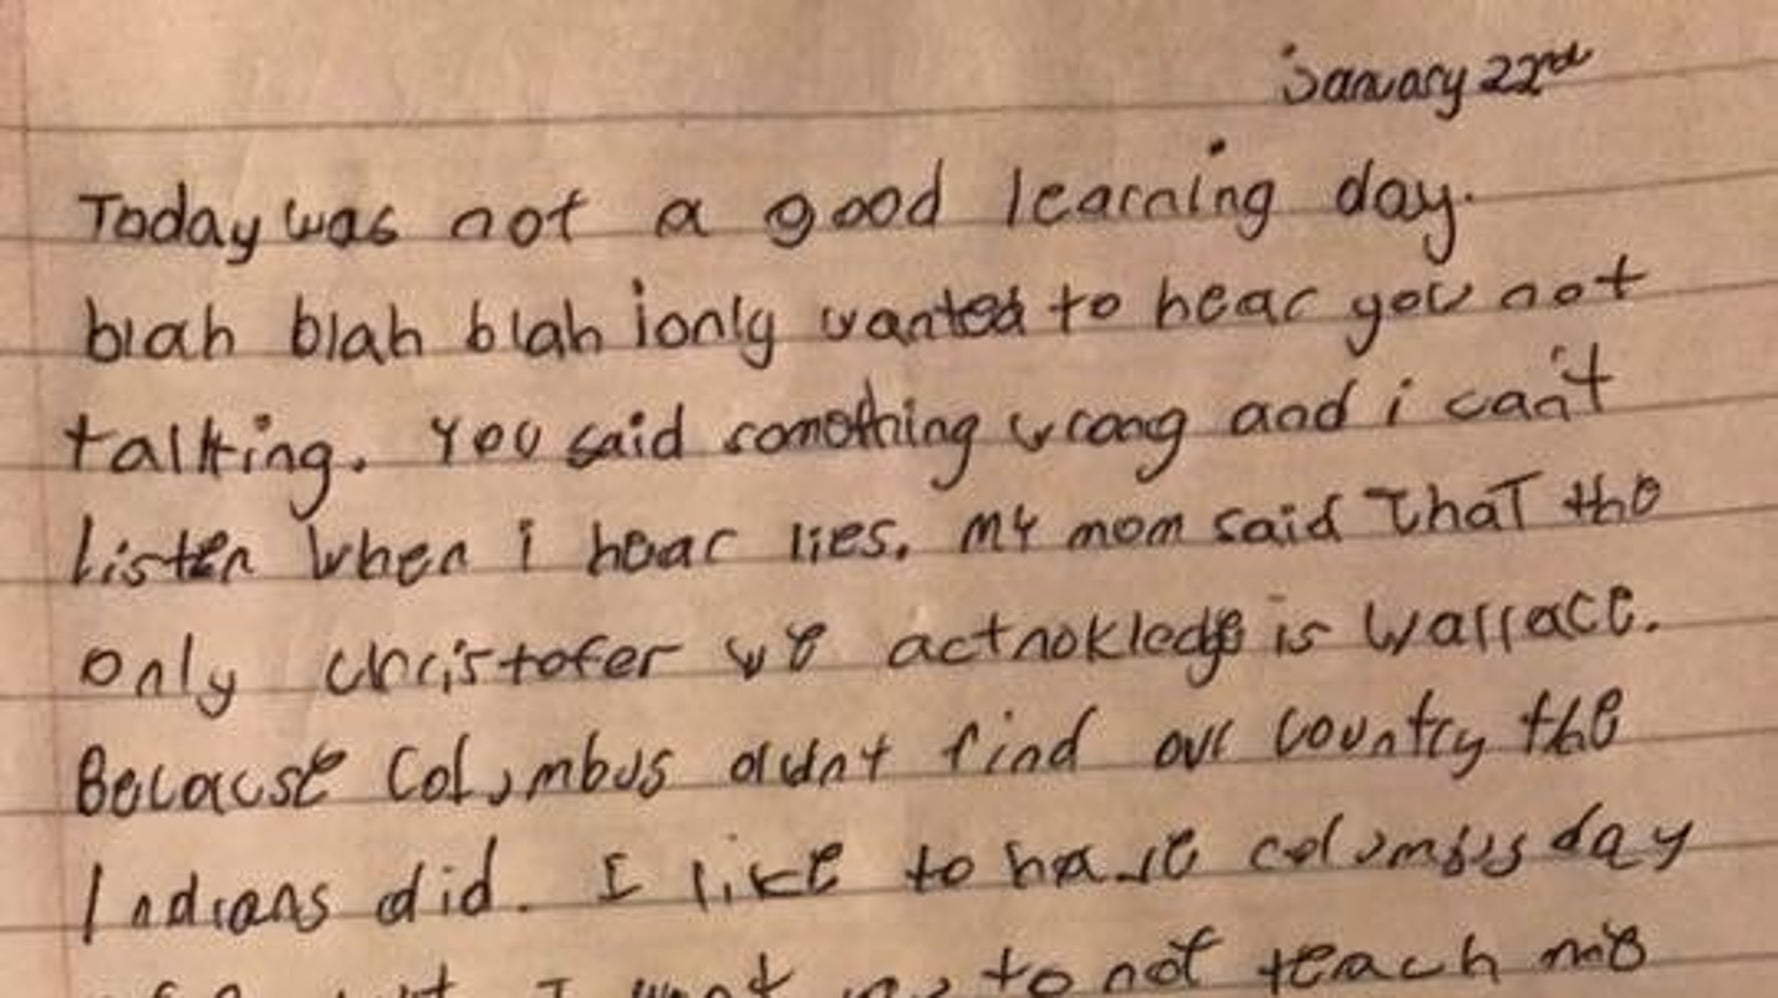 January 22nd
Today was not a good learning day.
blah blah blah i only wanted to hear you not
talking. You said something wrong and i can't
listen when i hear lies. My mom said that the
only christofer we acknokledge is Wallace.
Because Columbus didnt find our country the
Indians did. I like to have columbus day
I want to not teach me